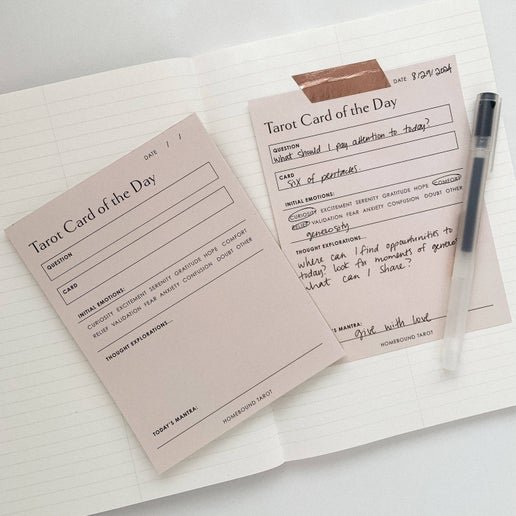 DATE / /
Tarot Card of the Day
QUESTION
CARD
INITIAL EMOTIONS:
CURIOSITY EXCITEMENT SERENITY GRATITUDE HOPE COMFORT
RELIEF VALIDATION FEAR ANXIETY CONFUSION DOUBT OTHER
THOUGHT EXPLORATIONS...
TODAY'S MANTRA:
HOMEBOUND TAROT
DATE 8/29/2024
Tarot Card of the Day
QUESTION
What should I pay attention to today?
CARD
six of pentacles
INITIAL EMOTIONS:
CURIOSITY EXCITEMENT SERENITY GRATITUDE HOPE COMFORT
RELIEF VALIDATION FEAR ANXIETY CONFUSION DOUBT OTHER
generosity
THOUGHT EXPLORATIONS...
where can I find opportunities to
today? look for moments of
what can I share?
MANTRA:
give with love
HOMEBOUND TAROT